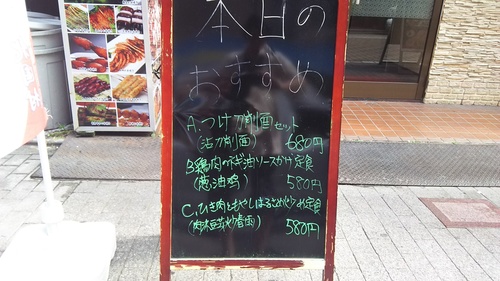 本日の
おすすめ
A.つけ刀削面セット
(沾刀削面) 680円
B.鶏肉のネギ油ソースかけ定食
(葱油鸡) 580円
C.ひき肉ともやしはるさめいため定食
(肉末豆芽炒春雨) 580円